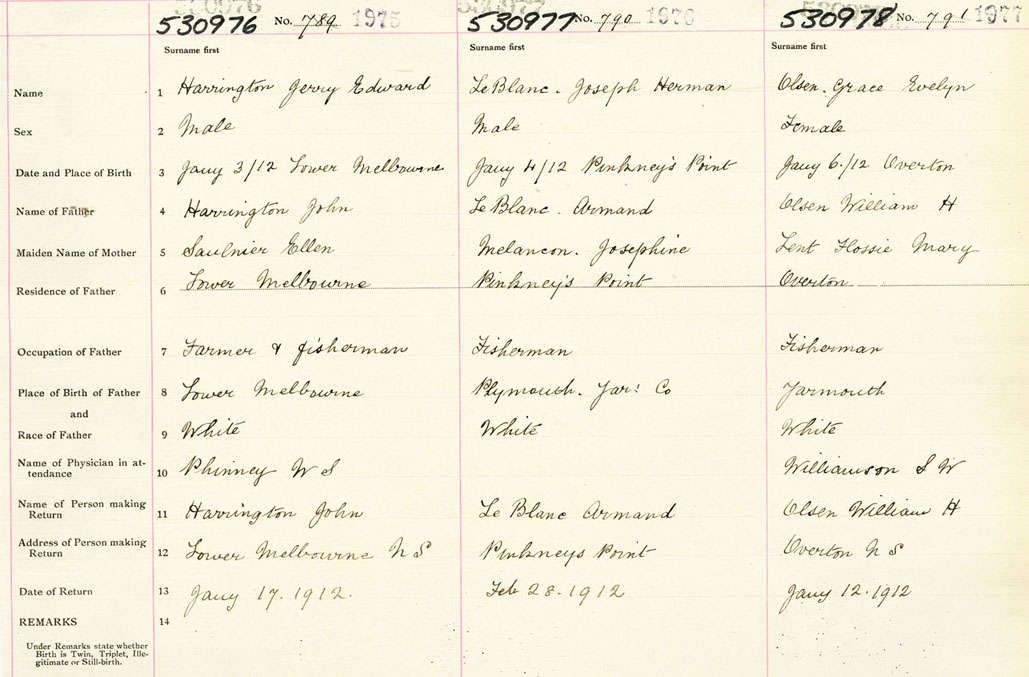 530976 No. 789 1975 530977 No. 790 1976 530978 No. 791 1977
Surname first Surname first Surname first
Name 1 Harrington Gerry Edward LeBlanc. Joseph Herman Olsen. Grace Evelyn
Sex 2 Male Male Female
Date and Place of Birth 3 Jany 3/12 Lower Melbourne Jany 4/12 Pinkney's Point Jany 6/12 Overton
Name of Father 4 Harrington John LeBlanc. Armand Olsen William H
Maiden Name of Mother 5 Saulnier Ellen Melancon. Josephine Lent Flossie Mary
Residence of Father 6 Lower Melbourne Pinkney's Point Overton
Occupation of Father 7 Farmer & fisherman Fisherman Fisherman
Place of Birth of Father 8 Lower Melbourne Plymouth. Yar: Co Yarmouth
and
Race of Father 9 White White White
Name of Physician in at-
tendance 10 Phinney W S Williamson S W
Name of Person making
Return 11 Harrington John Le Blanc Armand Olsen William H
Address of Person making
Return 12 Lower Melbourne N S Pinkneys Point Overton N S
Date of Return 13 Jany 17. 1912. Feb 28. 1912 Jany 12. 1912
REMARKS 14
Under Remarks state whether
Birth is Twin, Triplet, Ille-
gitimate or Still-birth.